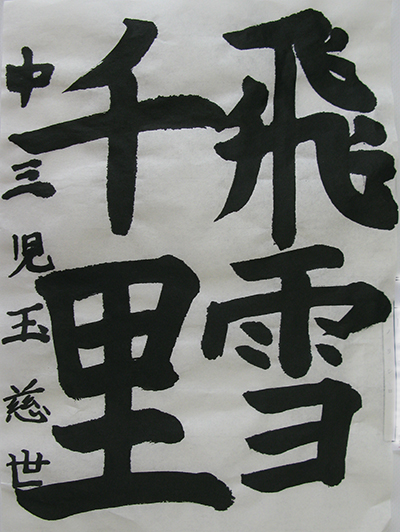 飛雪
千里
中三児玉慈世